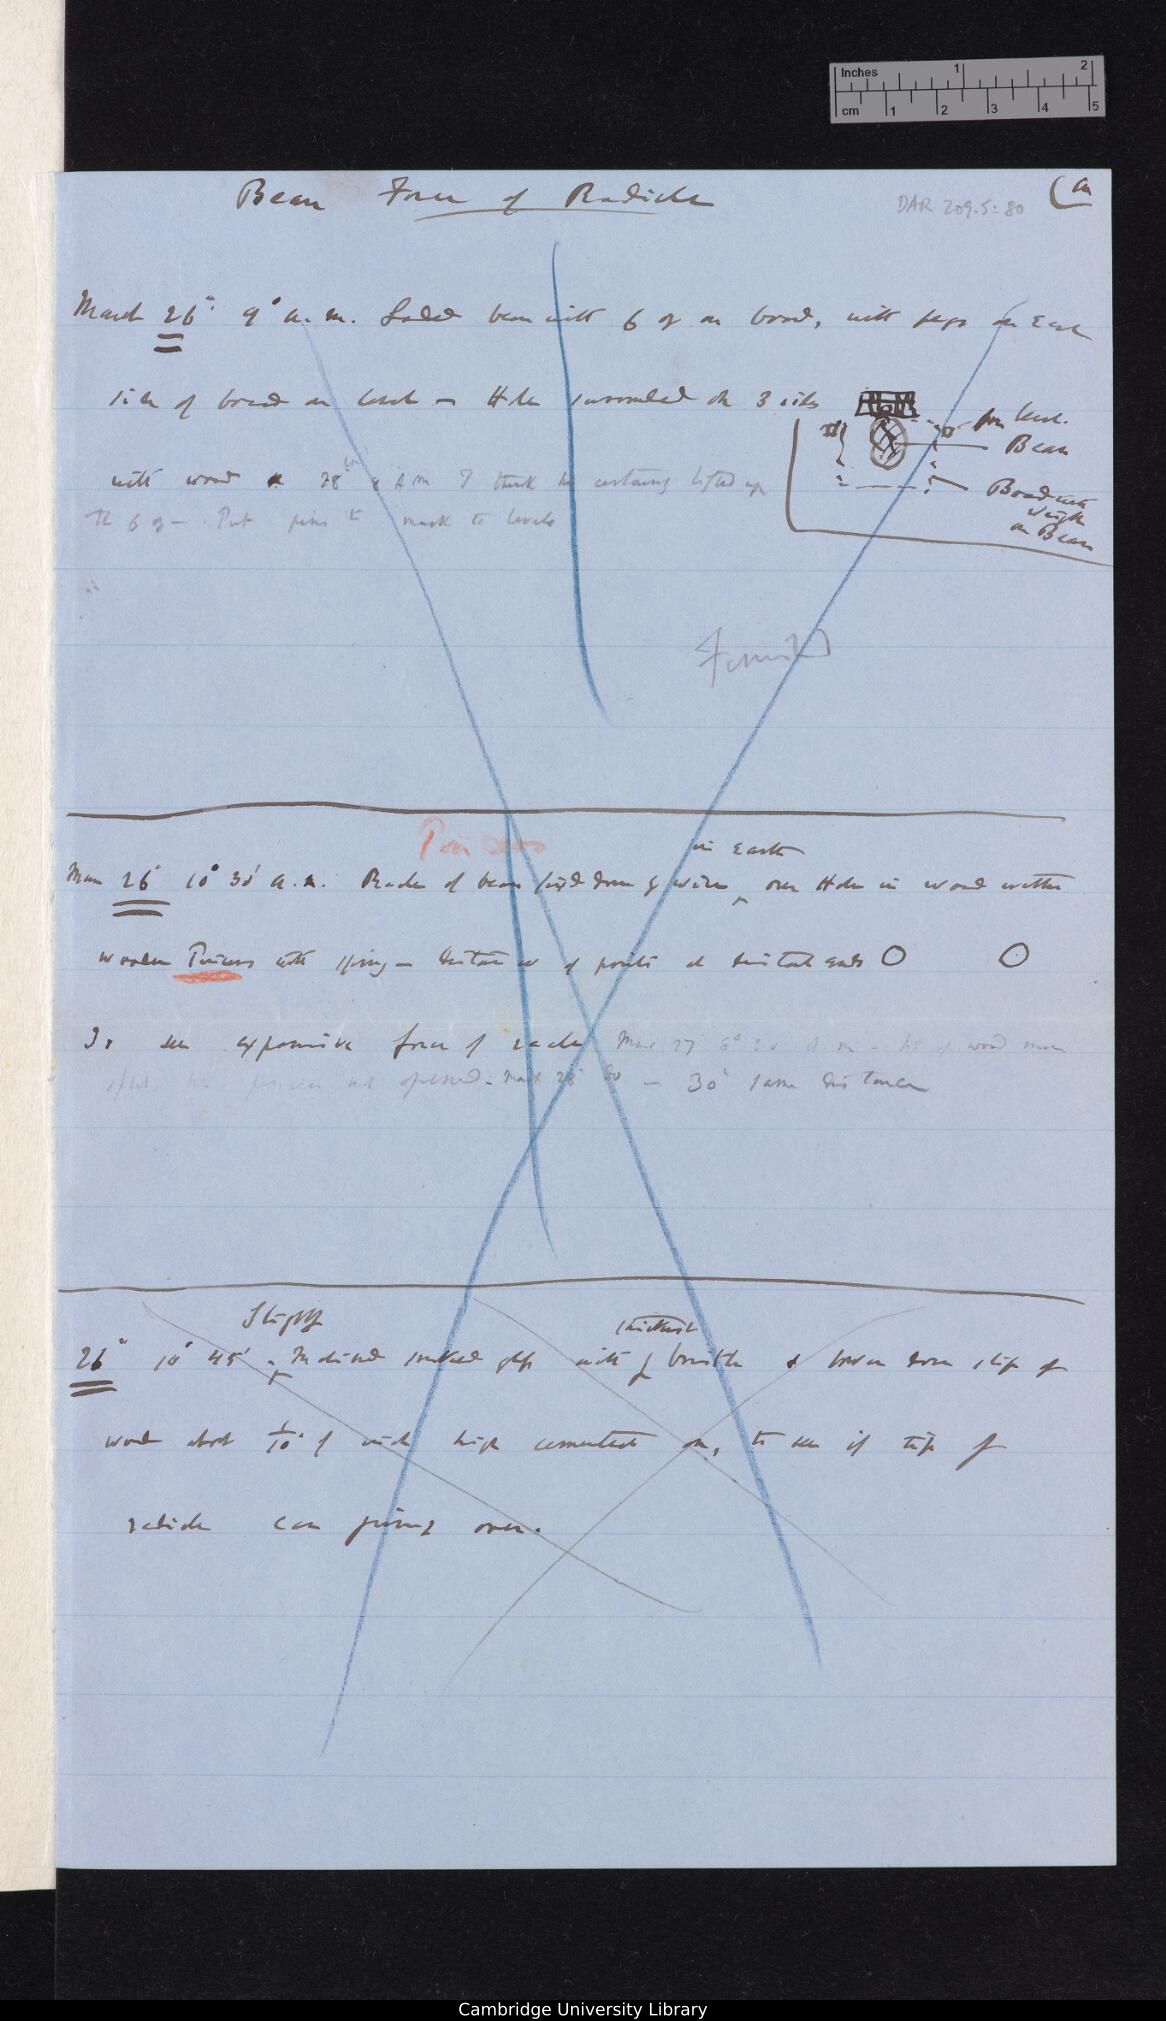 Inches 1 2
cm 1 2 3 4 5
Bean Force of Radicle
DAR 209.5: 80
(a
March 26" 9° a.m. Loaded bean with 6 oz on board, with pegs on Each
side of board on level — Hole surrounded on 3 sides
for level.
Bean
Board with weight on Bean
with wood 28th 8 A m I think has certainly lifted up
the 6 oz — Put pins to mark to levels
Finished
Pincers
in Earth
Mar 26 10° 30' a.m. Radicle of bean fixed down by wires ^ over Hole in wood within
wooden Pincers with spring — distance of points at distal ends O O
To see expansive force of radicle Mar 27 8° 30 A m — of wood more
pincers not opened: March 28 — 30' same distance
Slightly
thickest
26" 10° 45' ^ Inclined smoked glass with bristle & broken down slip of
wood about 1/10 of inch high cemented on, to see if tip of
radicle can jump over.
Cambridge University Library